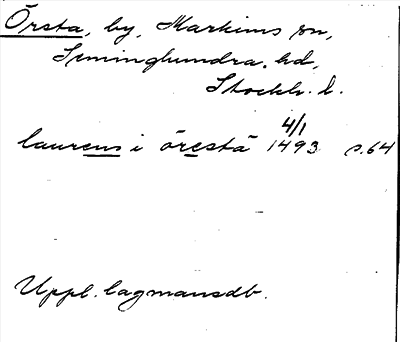 Örsta, by, Markims sn,
Seminghundra hd,
Stockh. l.
4/1
laurens i öresta 1493 s. 64
Uppl. lagmansdb.